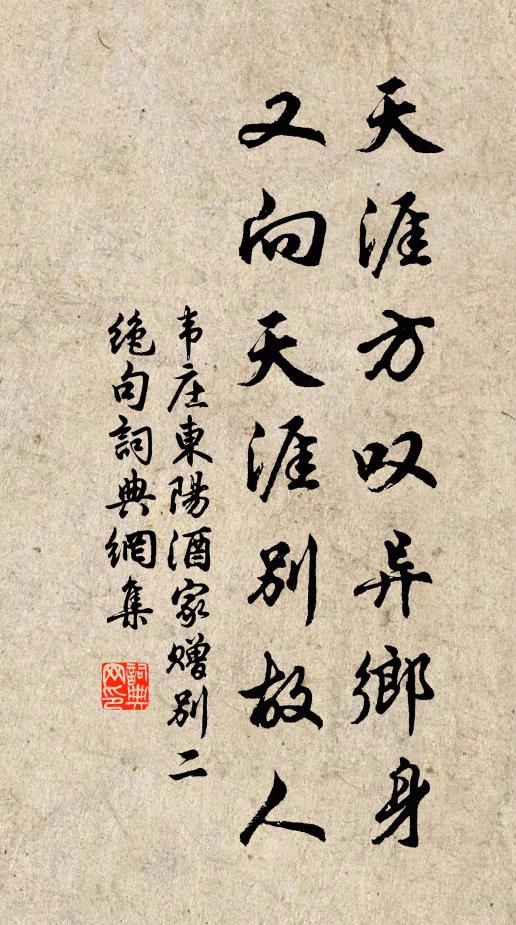 天涯方叹异鄉身
又向天涯别故人
韦庄東陽酒家赠别二
绝句詞典網集
詞典
网印